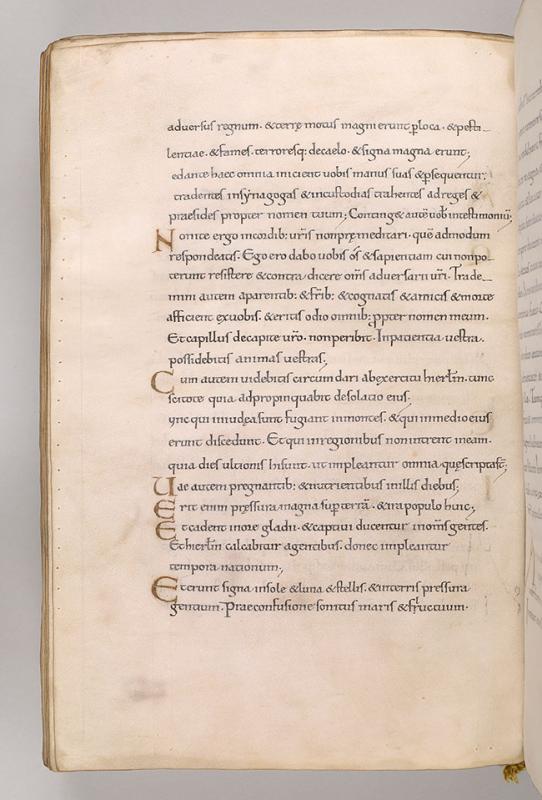 adversus regnum. &terrę motus magni erunt ploca. &pesti
lentiae. &fames. terroresq: decaelo. &signa magna erunt;
edante haec omnia inicient uobis manus suas &psequentur;
tradentes insynagogas &incustodias trahentes adreges &
praesides propter nomen meum; Conting& autē uob intestimoniū;
Nonite ergo incordib: uris nonpręmeditari. quē admodum
respondeatis. Ego ero dabo uobis ós &sapientiam cui nonpo
terunt resistere &contra dicere oms adversarii uri. Trade
mini autem aparentib: &frib: &cognatis &amicis &morte
afficient exuobis. &eritis odio omnib: ppter nomen meum.
Et capillus decapite uro. nonperibit. Inpatientia uestra.
possidebitis animas uestras;
Cum autem uidebitis circum dari abexercitu hierlm. tunc
scitote quia adpropinquabit desolatio eius.
ync qui iniudęa sunt fugiant inmontes. &qui inmedio eius
erunt discedunt. Et qui inregionibus nonintrent ineam.
quia dies ultionis hi sunt. ut impleantur omnia quę scripta st;
Uae autem pregnantib: &nutrientibus inillis diebus;
Erit enim pressura magna sup terrā. &ira populo huic;
Et cadent inore gladii. &captiui ducentur inoms gentes.
Et hierlm calcabitur agentibus. donec impleantur
tempora nationum;
Et erunt signa insole &luna &stellis. &interris pressura
gentium. Prae confusione sonitus maris &fluctuum.